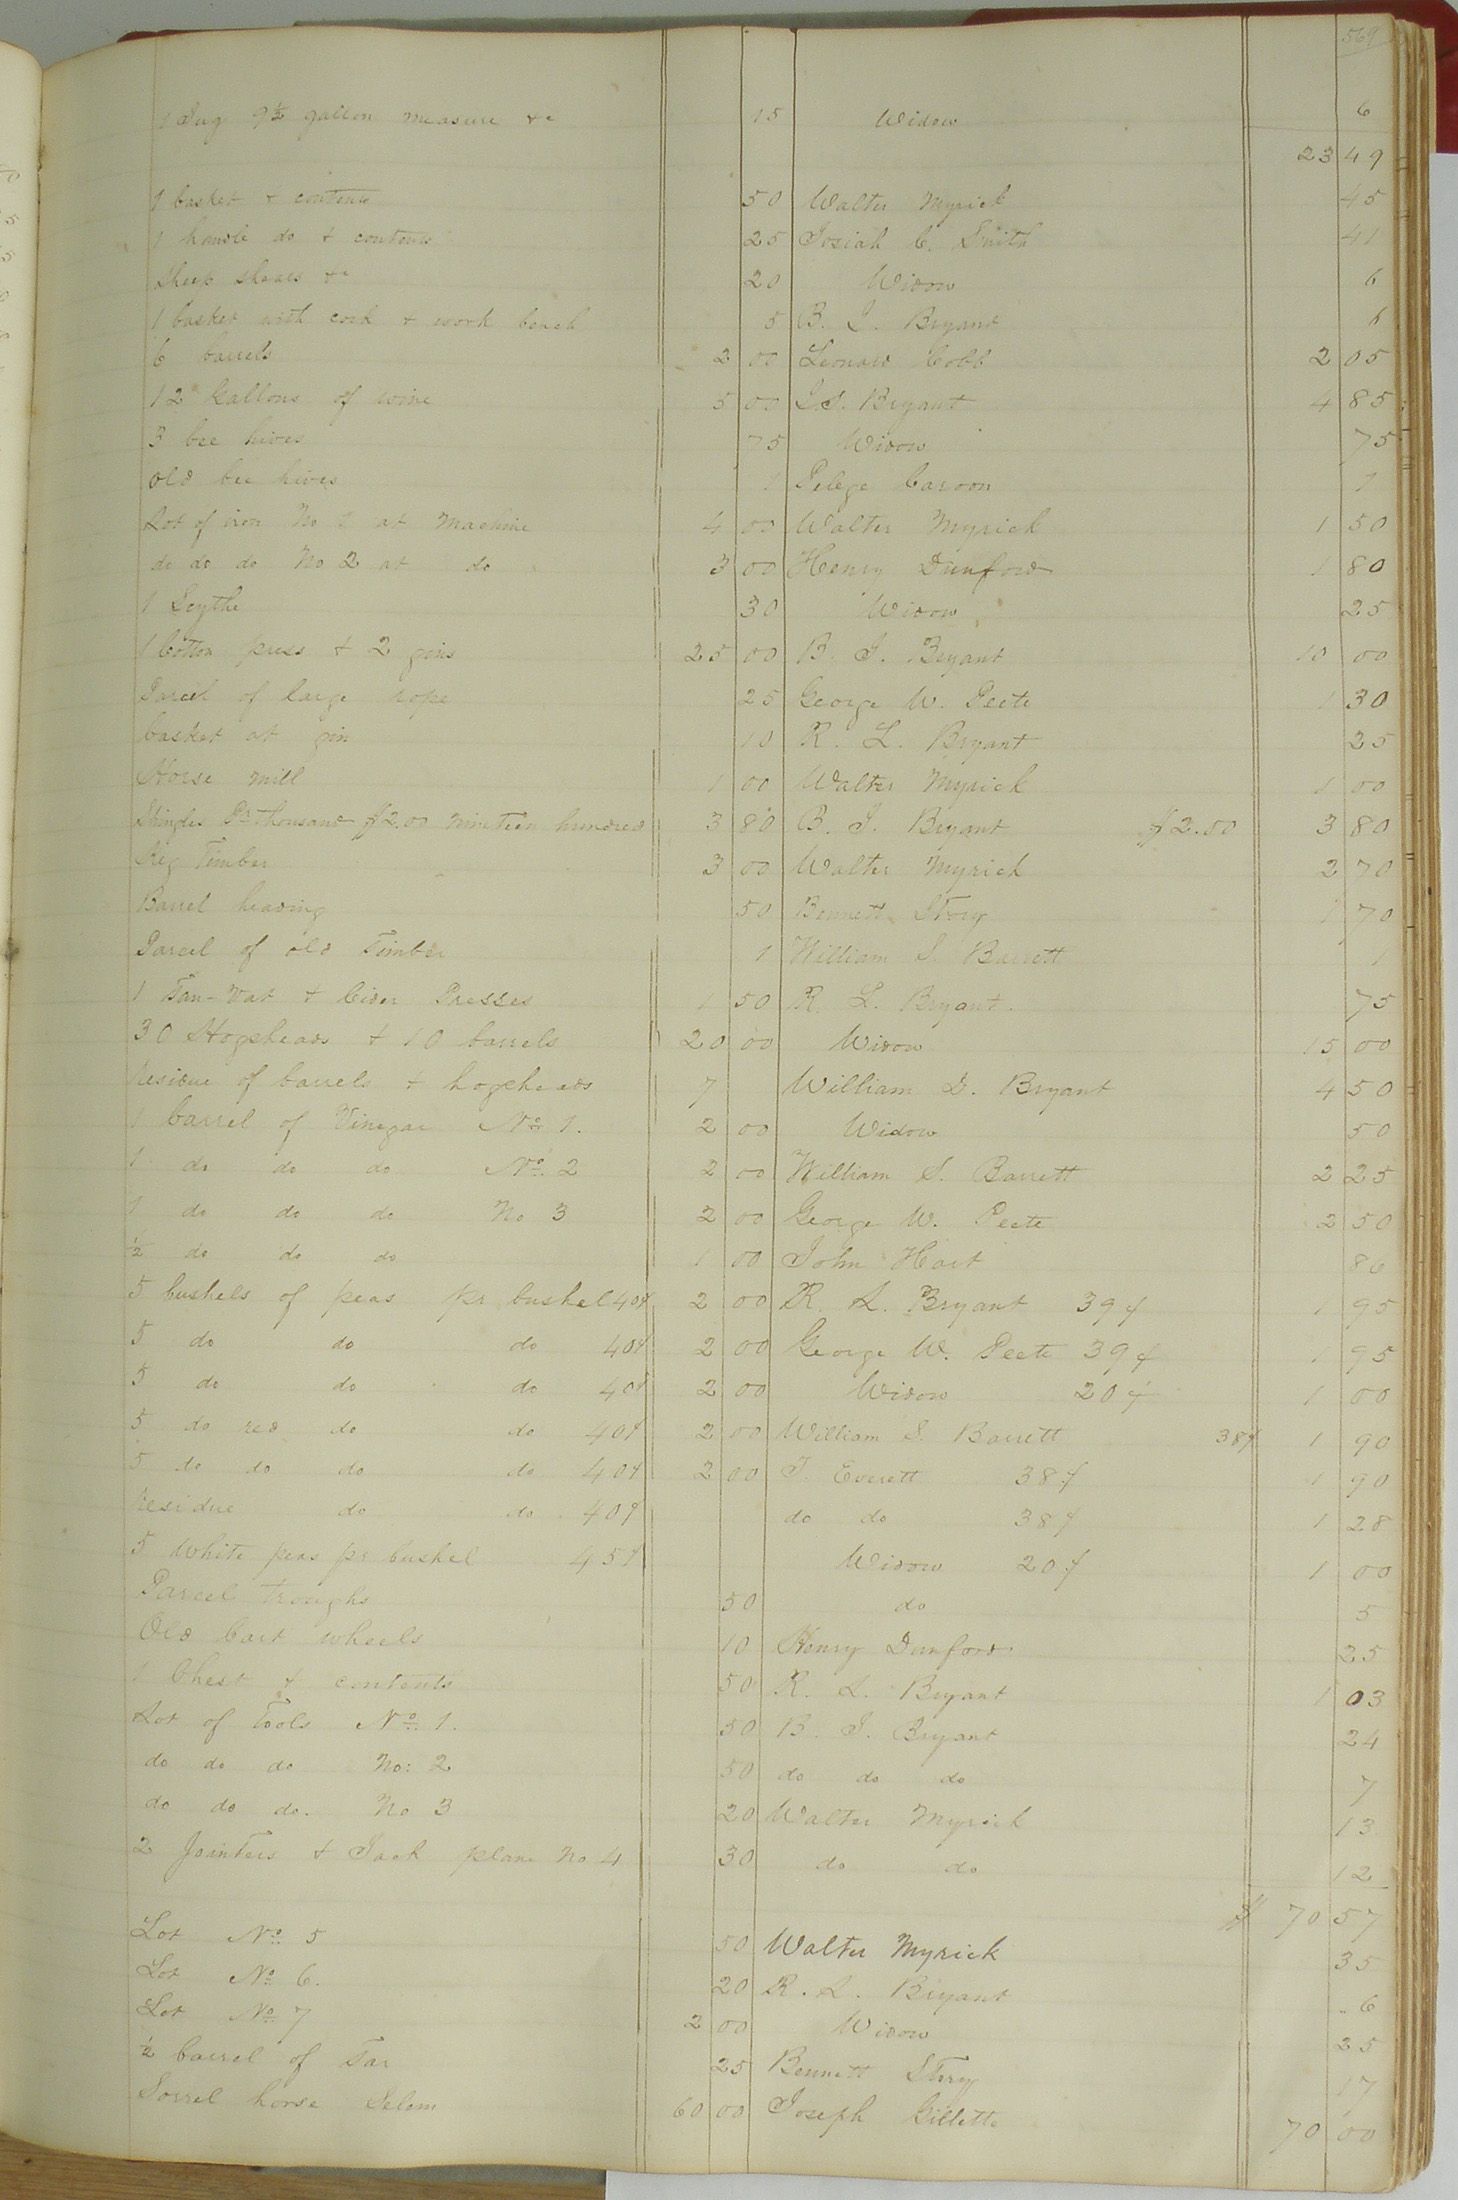 569
1 Jug 9½ gallon measure &c 15 Widow 6
23 49
1 basket & contents 50 Walter Myrick 45
1 handle do & contents 25 Josiah C. Smith 41
Sheep shears &c 20 Widow 6
1 basket with cork & work bench 5 B. J. Bryant 6
6 barrels 2 00 Leonard Cobb 2 05
12 Gallons of wine 5 00 J.S. Bryant 4 85
3 bee hives 75 Widow 75
old bee hives 1 Pelege 1
Lot of iron No 1 at Machine 4 00 Walter Myrick 1 50
do do do No 2 at do 3 00 Henry Dunford 1 80
1 Scythe 30 Widow 25
1 Cotton press & 2 gins 25 00 B. J. Bryant 10 00
Parcel of large rope 25 George W. Peete 1 30
basket at gin 10 R. L. Bryant 25
Horse mill 1 00 Walter Myrick 1 00
Shingles Pr thousand $2.00 nineteen hundred 3 80 B. J. Bryant $2.00 3 80
Keg Timber 3 00 Walter Myrick 2 70
Barrel heading 50 Bennett Story 1 70
Parcel of old Timber 1 William S. Barrett 1
1 Tan-Vat & Cider Presses 1 50 R. L. Bryant. 75
30 Hogsheads & 10 barrels 20 00 Widow 15 00
Residue of barrels & hogsheads 7 William D. Bryant 4 50
1 barrel of Vinegar No 1. 2 00 Widow 50
1 do do do No 2 2 00 William S. Barrett 2 25
1 do do do No 3 2 00 George W. Peete 2 50
½ do do do 1 00 John Hart 86
5 bushels of peas pr bushel 40¢ 2 00 R. L. Bryant 39¢ 1 95
5 do do do 40¢ 2 00 George W. Peete 39¢ 1 95
5 do do do 40¢ 2 00 Widow 20¢ 1 00
5 do red do do 40¢ 2 00 William S. Barrett 38¢ 1 90
5 do do do do 40¢ 2 00 T. Everett 38¢ 1 90
residue do do 40¢ do do 38¢ 1 28
5 White peas pr bushel 45¢ Widow 20¢ 1 00
Parcel troughs 50 do 5
Old Cart wheels 10 Henry Dunford 25
1 Chest & contents 50 R. L. Bryant 1 03
Lot of Tools No 1. 50 B. J. Bryant 24
do do do No: 2 50 do do do 7
do do do. No 3 20 Walter Myrick 13
2 Jointers & Jack plane No 4 30 do do 12
$ 70 57
Lot No 5 50 Walter Myrick 35
Lot No 6. 20 R. L. Bryant 6
Lot No 7 2 00 Widow 25
½ barrel of Tar 25 Bennett Story 17
Sorrel horse Selem 60 00 Joseph Gillette 70 00